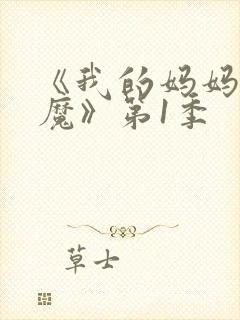 《我的妈妈
魔》第1季
草士